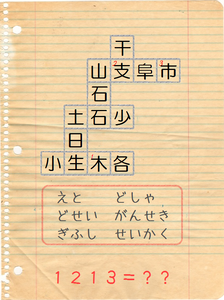 干
山支阜市
石
土石少
日
小生木各
えと　どしゃ
どせい　がんせき
ぎふし　せいかく
1213=??